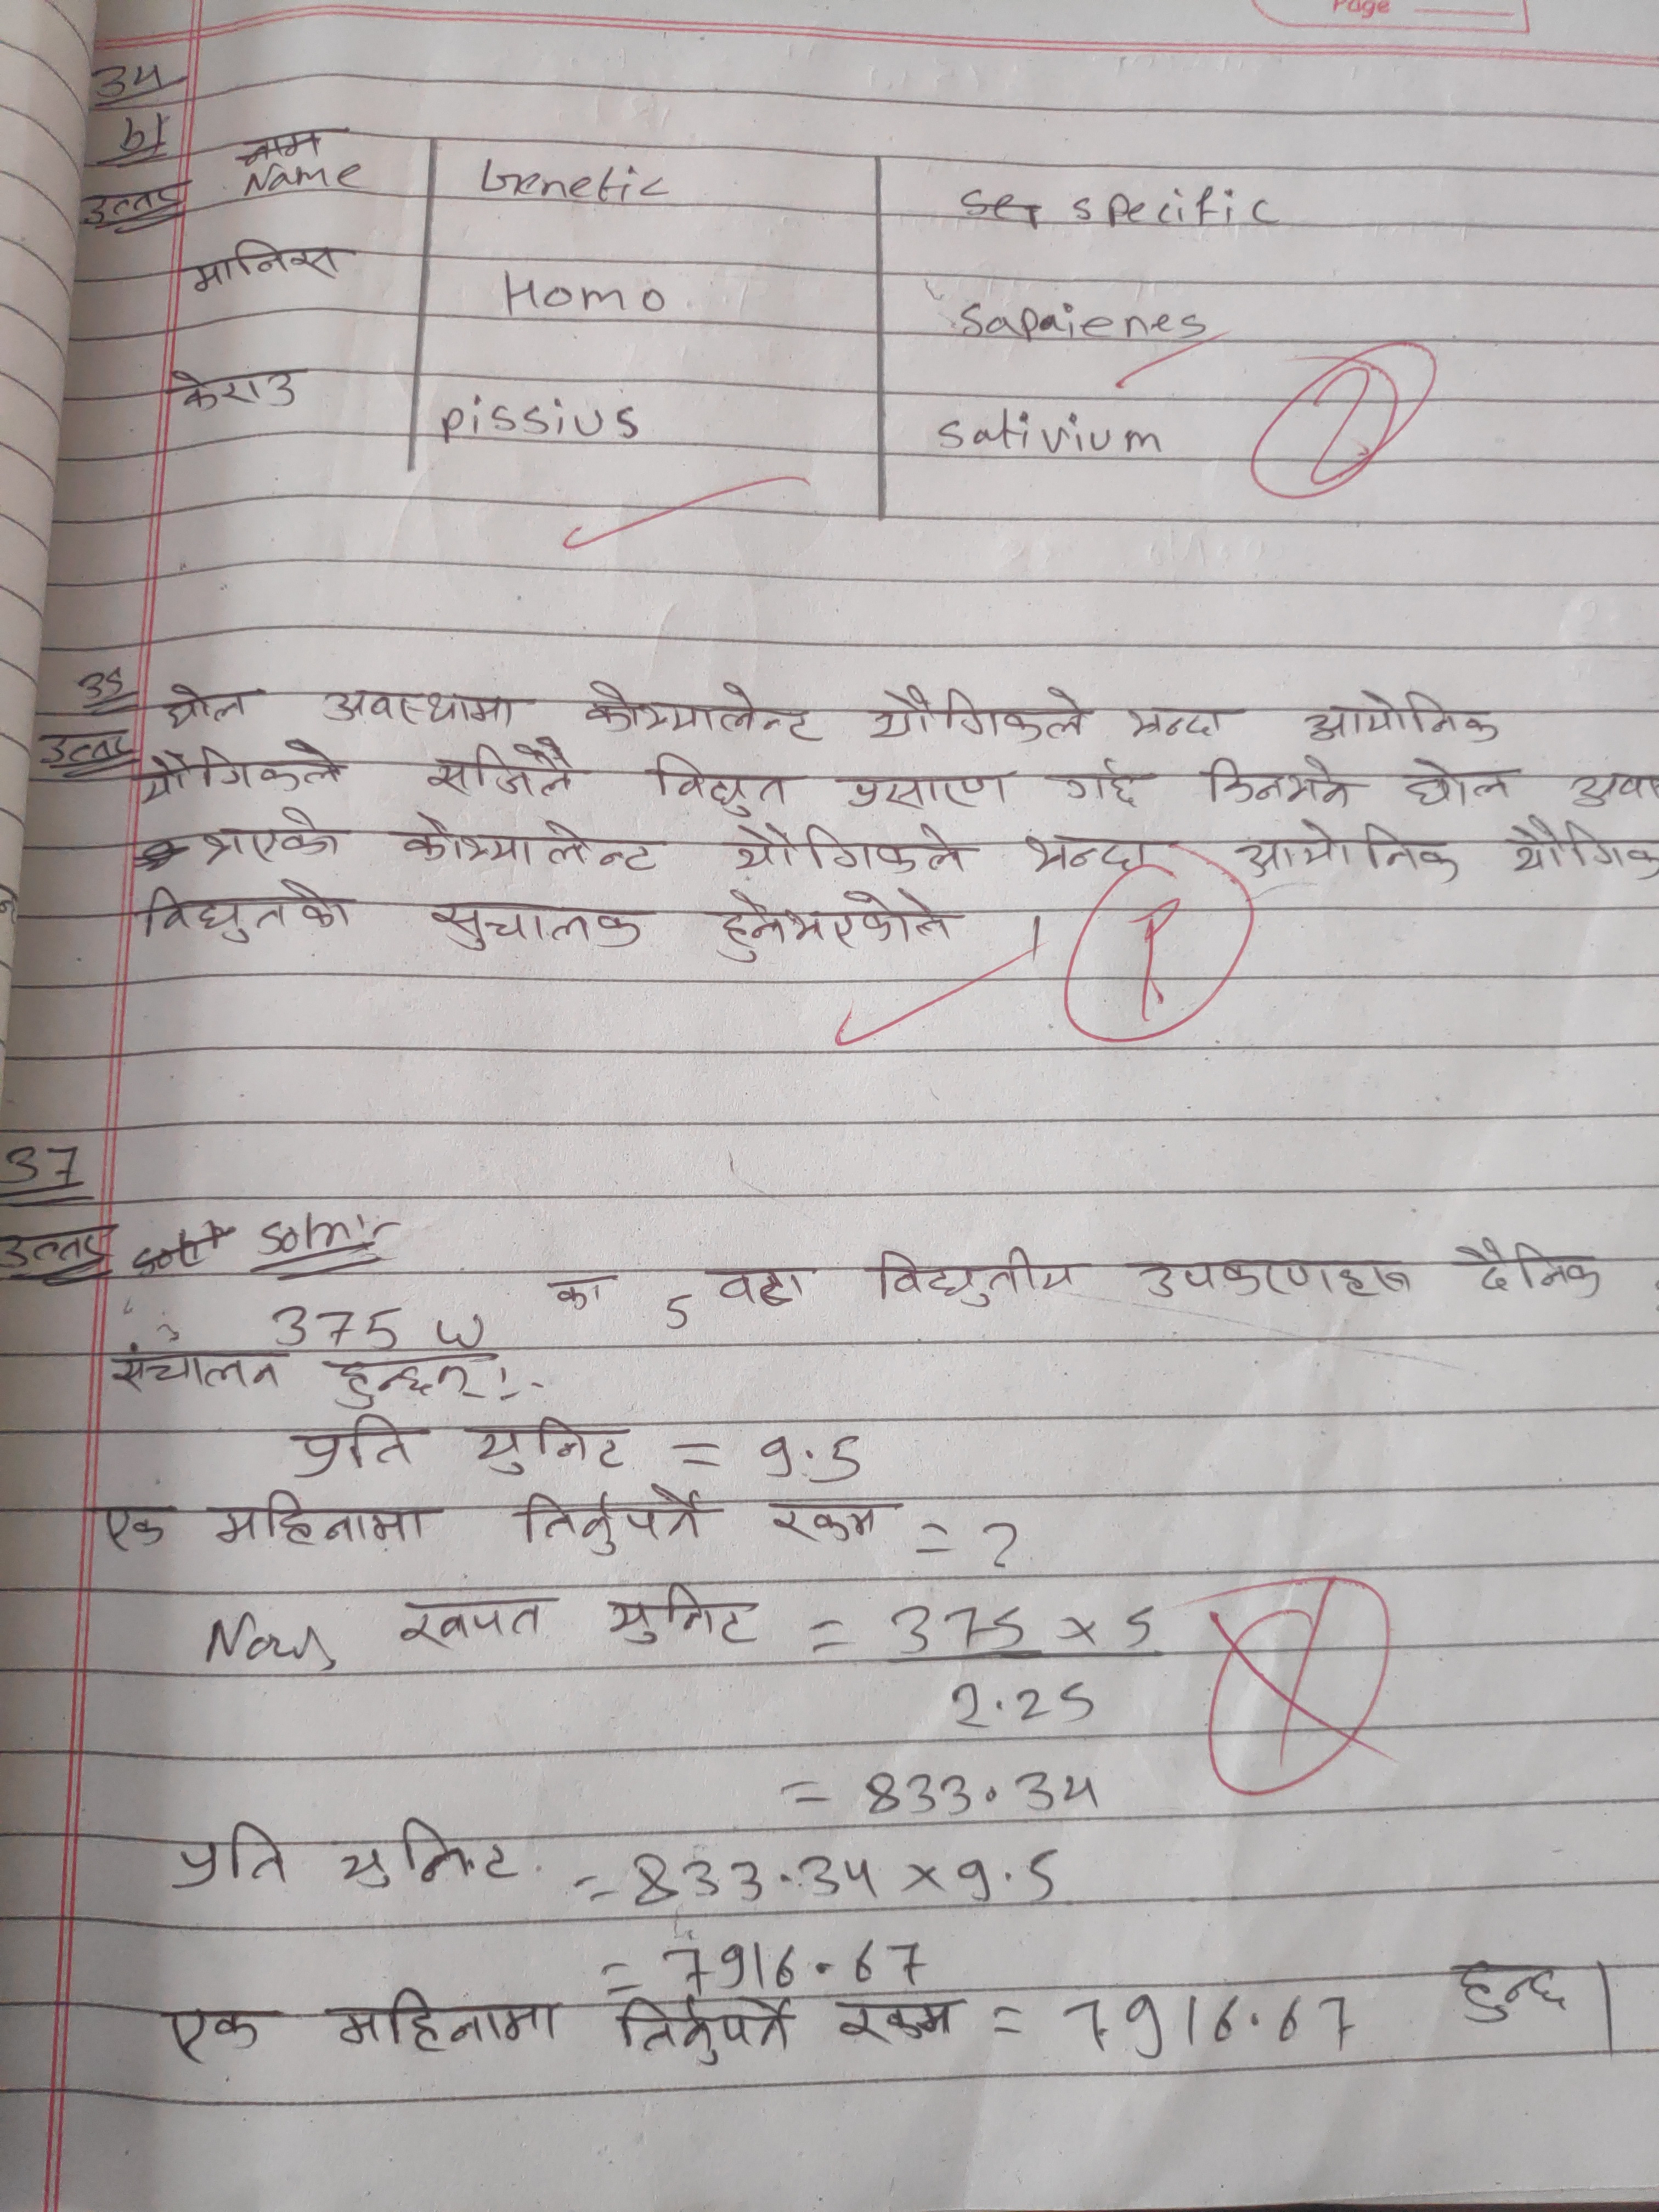 Page
३४
b)
उत्तर
नाम
Name Genetic specific
मानिस Homo sapaienes
केराउ pissius sativium
2
३५
उत्तर घोल अवस्थामा कोभ्यालेन्ट यौगिकले भन्दा आयोनिक
यौगिकले सजिलै विद्युत प्रसारण गर्छ किनभने घोल
भएको कोभ्यालेन्ट यौगिकले भन्दा आयोनिक यौगिक
विद्युतको सुचालक हुनेभएकोले ।
1
37
उत्तर soln:-
375 W का 5 वटा विद्युतीय उपकरणहरू दैनिक
संचालन हुन्छन्:-
प्रति युनिट = 9.5
एक महिनामा तिर्नुपर्ने रकम = ?
Now, खपत युनिट = 375 x 5
2.25
= 833.34
प्रति युनिट = 833.34 x 9.5
= 7916.67
एक महिनामा तिर्नुपर्ने रकम = 7916.67 हुन्छ |